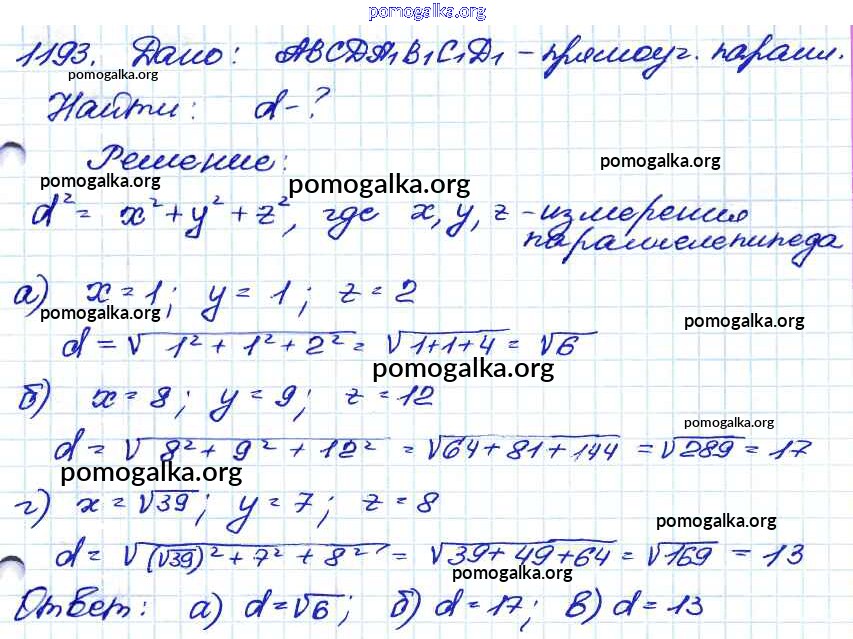 pomogalka.org
1193. Дано: ABCDA₁B₁C₁D₁ - прямоуг. паралл.
pomogalka.org
Найти: d-?
Решение:
pomogalka.org
pomogalka.org
pomogalka.org
d² = x² + y² + z², где x, y, z - измерения
параллелепипеда
а) x = 1; y = 1; z = 2
pomogalka.org
pomogalka.org
d = √1² + 1² + 2² = √1+1+4 = √6
pomogalka.org
б) x = 8; y = 9; z = 12
pomogalka.org
d = √8² + 9² + 12² = √64 + 81 + 144 = √289 = 17
pomogalka.org
г) x = √39; y = 7; z = 8
pomogalka.org
d = √(√39)² + 7² + 8² = √39 + 49 + 64 = √169 = 13
pomogalka.org
Ответ: а) d = √6; б) d = 17; в) d = 13